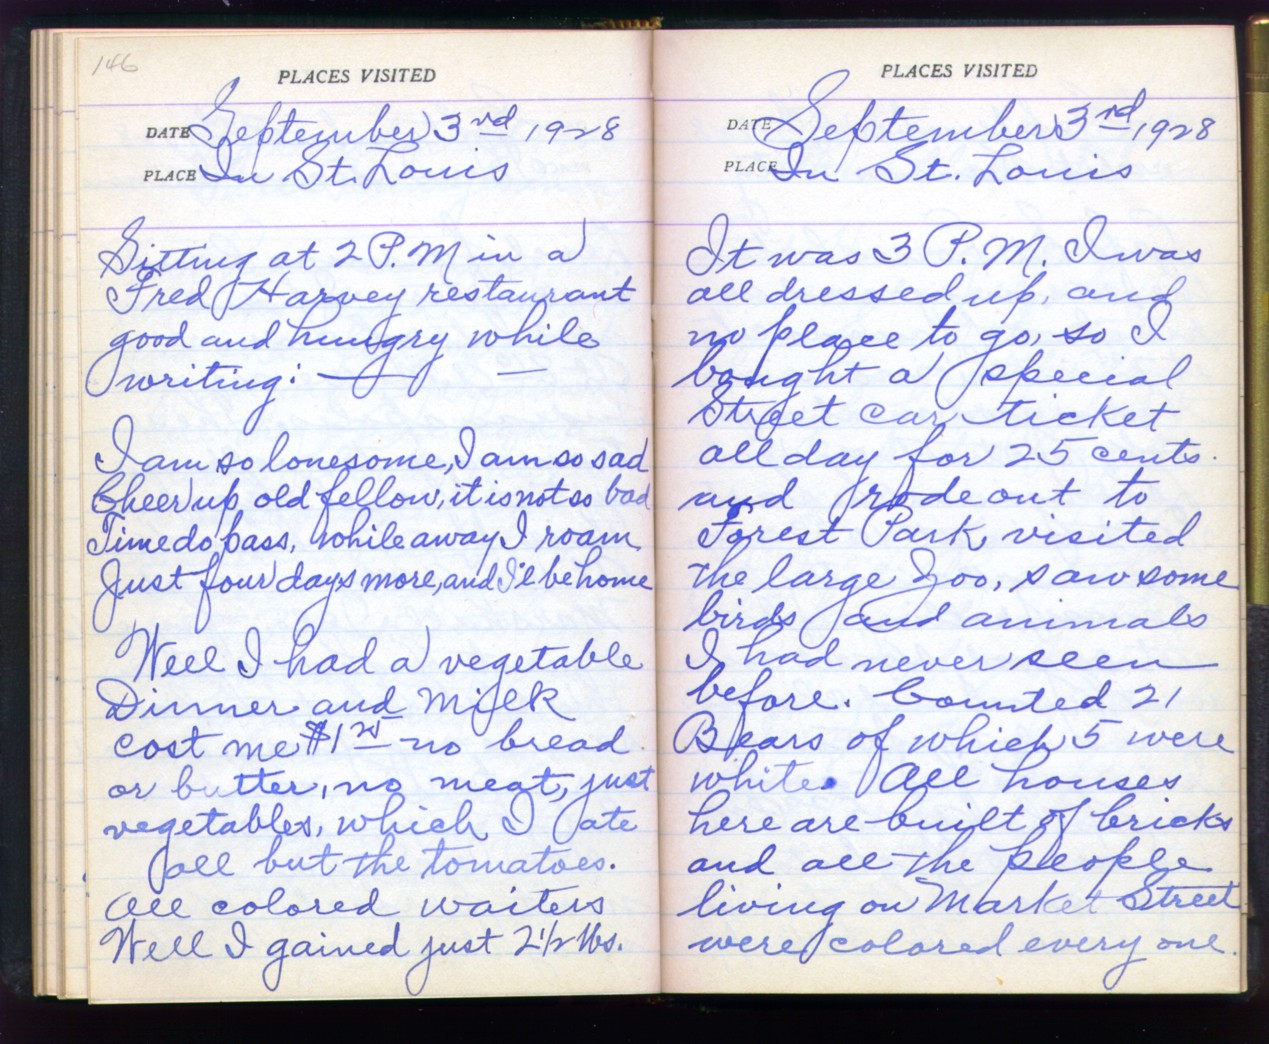 146
PLACES VISITED
DATE September 3rd, 1928
PLACE In St. Louis
Sitting at 2 P.M in a
Fred Harvey restaurant
good and hungry while
writing: — —
I am so lonesome, I am so sad
Cheer up old fellow, it is not so bad
Time do pass, while away I roam
Just four days more, and I'll be home
Well I had a vegetable
Dinner and Milk
cost me $1 no bread
or butter, no meat, just
vegetables, which I ate
all but the tomatoes.
All colored waiters
Well I gained just 2 1/2 lbs.
PLACES VISITED
DATE September 3rd, 1928
PLACE In St. Louis
It was 3 P.M. I was
all dressed up, and
no place to go, so I
bought a special
Street car ticket
all day for 25 cents.
and rode out to
Forest Park, visited
the large Zoo, saw some
birds and animals
I had never seen
before. Counted 21
Bears of which 5 were
white. All houses
here are built of bricks
and all the people
living on Market Street
were colored every one.